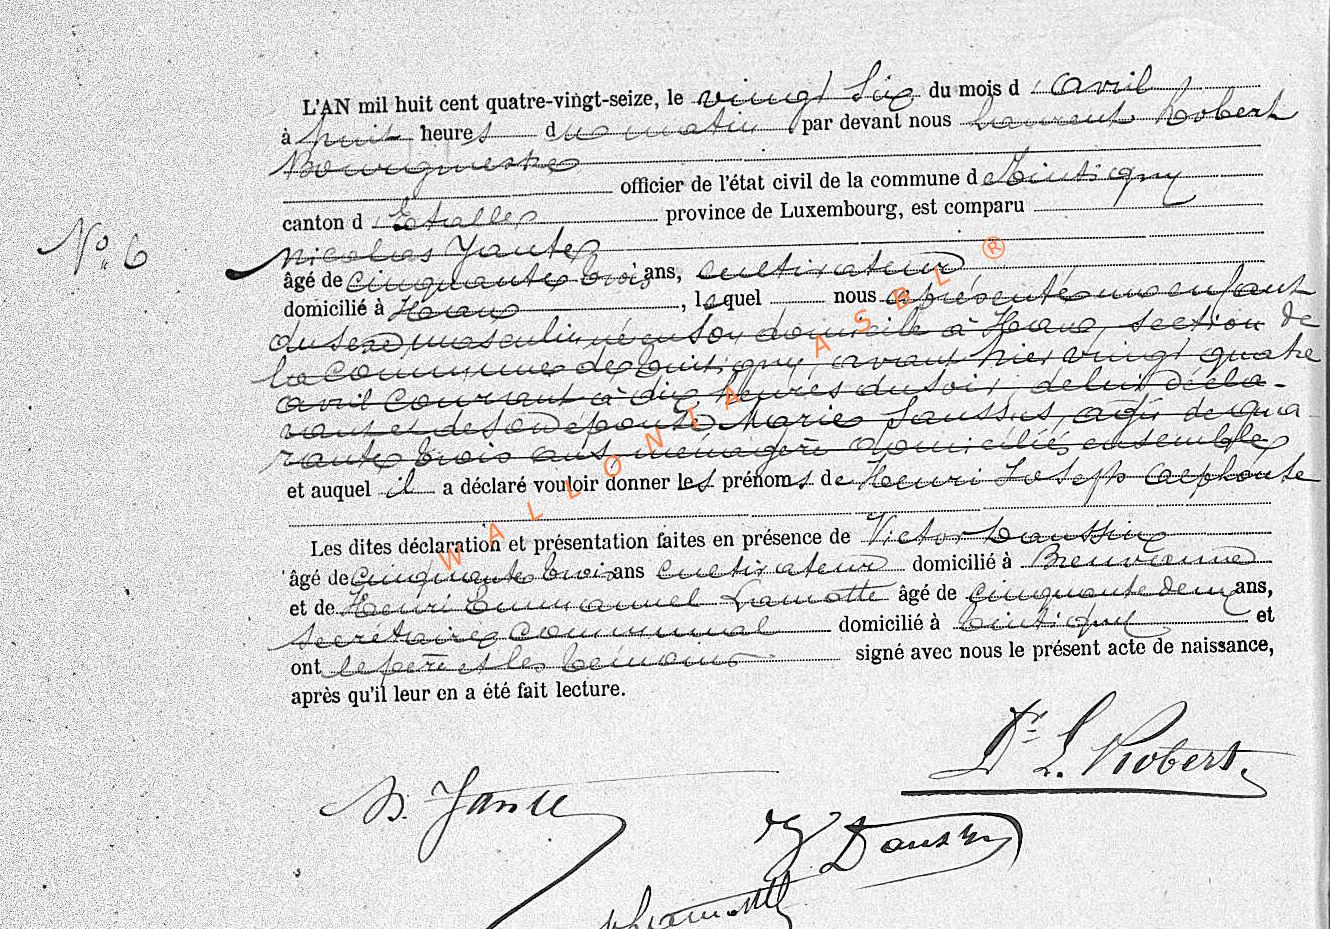 L'AN mil huit cent quatre-vingt-seize, le vingt six du mois d'avril
à huit heures du matin par devant nous Laurent Robert
Bourgmestre
officier de l'état civil de la commune de Tintigny
canton d'Etalle province de Luxembourg, est comparu
N° 6
Nicolas Jante
âgé de cinquante trois ans, cultivateur
domicilié à Han, lequel nous a présenté un enfant
du sexe masculin né en son domicile à Han, section de
la commune de Tintigny, avant hier vingt quatre
avril courant à dix heures du soir, de lui décla-
rant et de son épouse Marie agée de qua-
rante trois ans ménagère domiciliés ensemble
et auquel il a déclaré vouloir donner les prénoms de Henri Joseph Alphonse
Les dites déclaration et présentation faites en présence de Victor
âgé de cinquante trois ans cultivateur domicilié à Breuvanne
et de Henri Emmanuel Lamotte âgé de cinquante deux ans,
secrétaire communal domicilié à Tintigny et
ont le père et les témoins signé avec nous le présent acte de naissance,
après qu'il leur en a été fait lecture.
Dr L. Robert.
N. Jante
Lamotte
WALLONIA ASBL ®